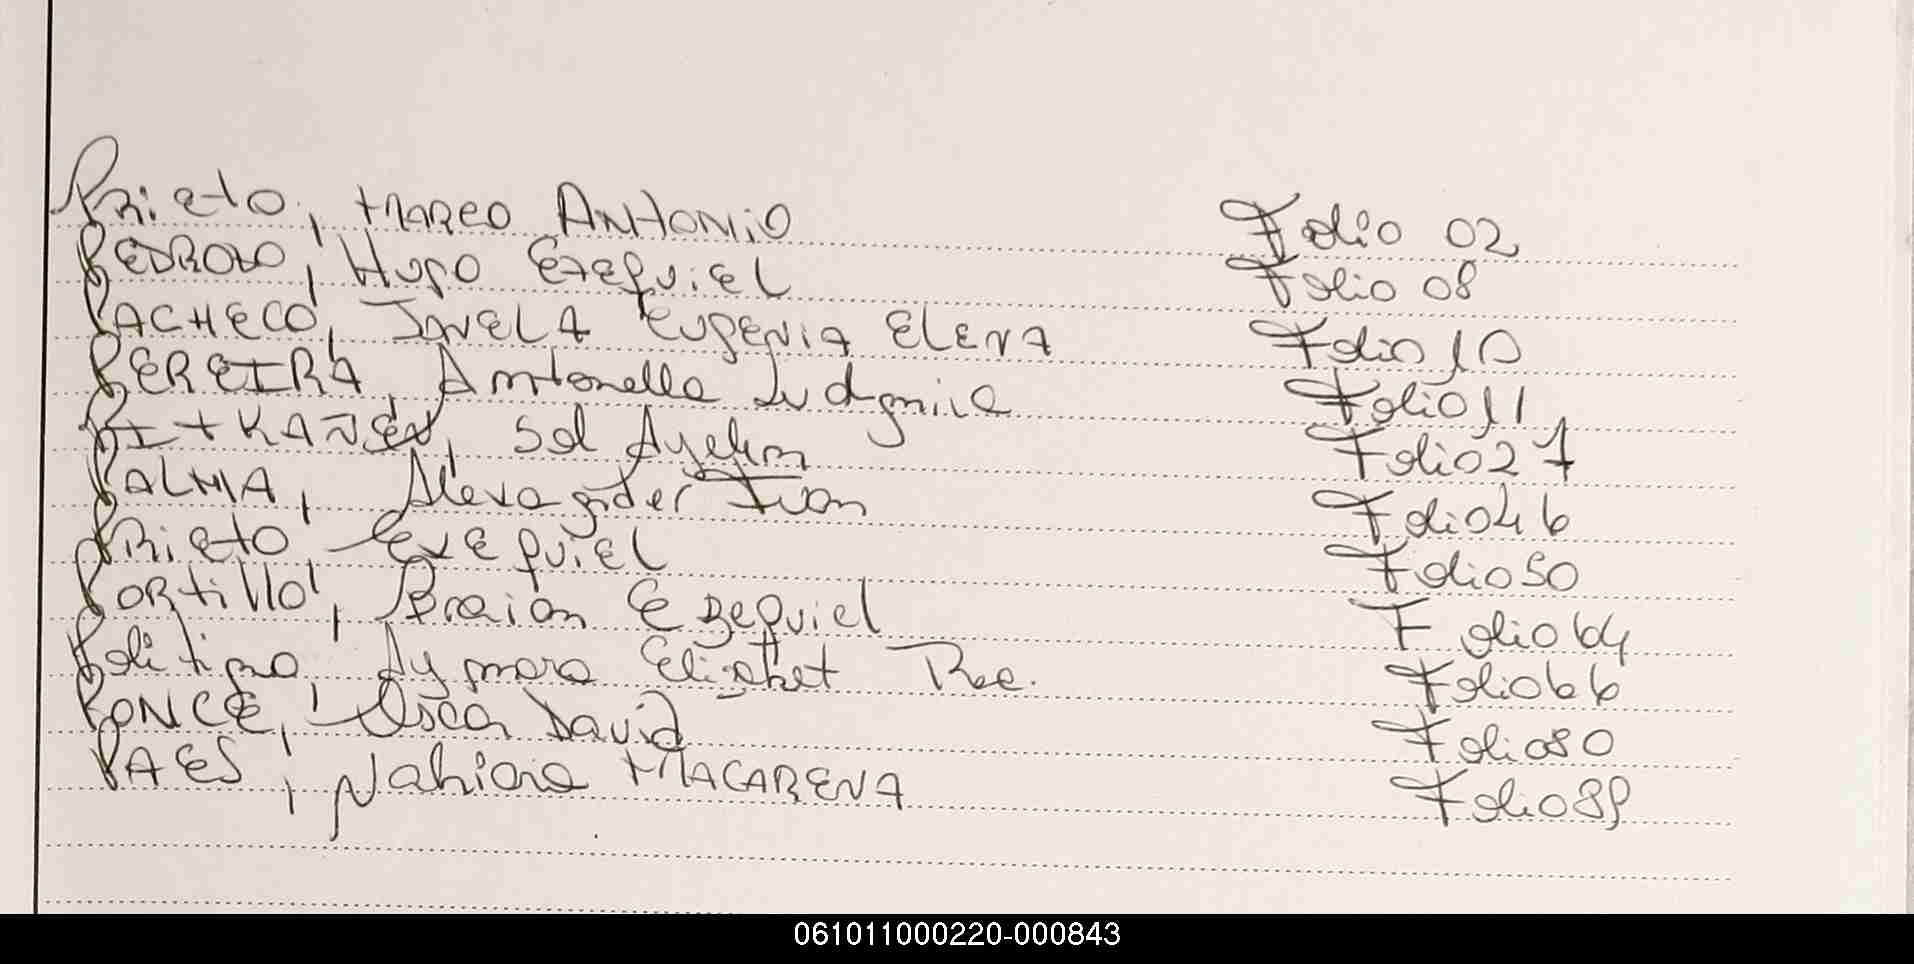 Prieto, MARCO ANTONIO Folio 02
PEDROZO, HUGO EZEQUIEL Folio 08
PACHECO, EUGENIA ELENA Folio 10
PEREIRA, Antonella Folio 11
Sol Ayelen Folio 27
PALMA, Alexander Ivan Folio 46
PRIETO EXEQUIEL Folio 50
PORTILLO, Braian Ezequiel Folio 64
Aymara Elizabet Folio 66
PONCE, Oscar David Folio 80
PAES, Nahiara MACARENA Folio 89
061011000220-000843